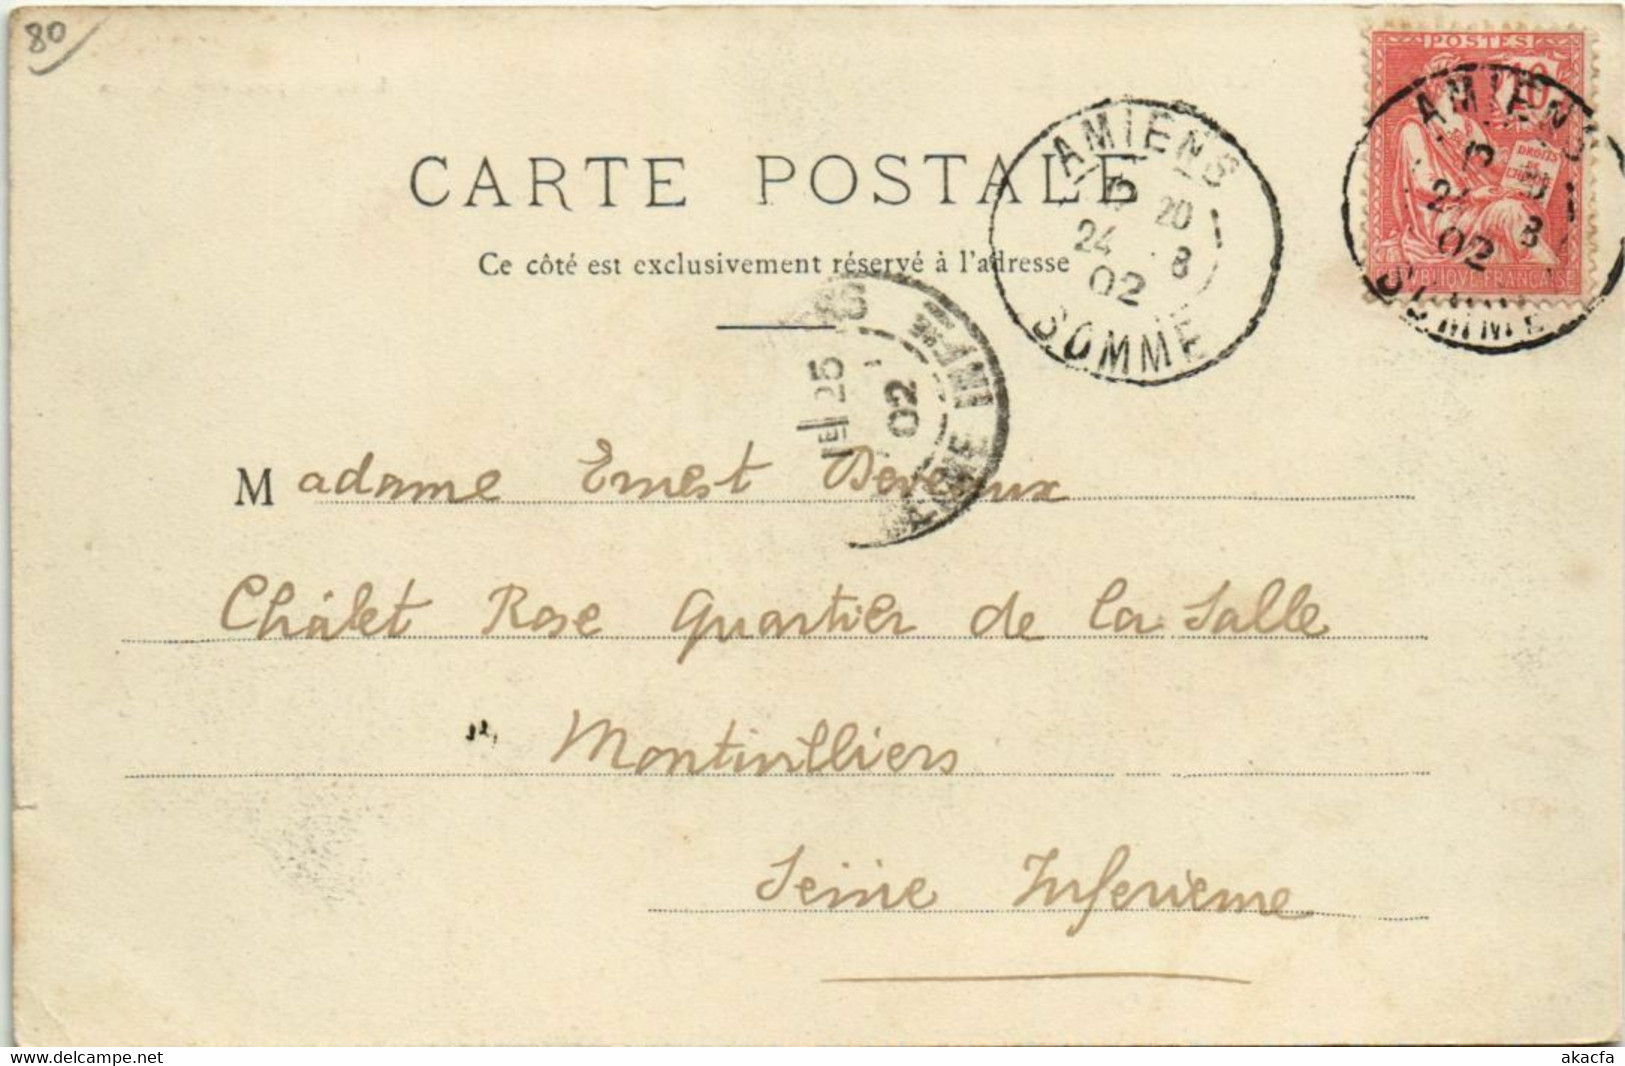 80
CARTE POSTALE
Ce côté est exclusivement réservé à l'adresse
AMIENS
20
24 8
02
SOMME
POSTES
10
DROITS
AMIENS
24 8
02
SOMME
RÉPUBLIQUE FRANÇAISE
1E 25
02
Madame Ernest Deveaux
Châlet Rose Quartier de la Salle
Montivilliers
Seine Inferieure
delcampe.net
akacfa